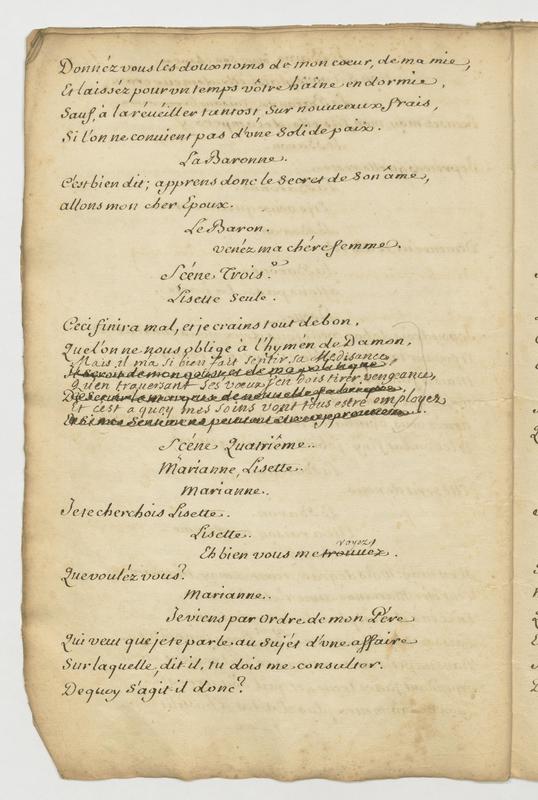 Donnéz vous les doux noms de mon cœur, de ma mie,
Et laissez pour un temps vôtre haîne endormie,
Sauf, à la réveiller tantost, sur nouveaux frais,
Si l'on ne convient pas d'vne solide paix.
La Baronne.
C'est bien dit; apprens donc le secret de son âme,
allons mon cher Epoux.
Le Baron.
venéz ma chére femme.
Scéne Trois.e
Lisette seule.
Ceci finira mal, et je crains tout de bon,
Que l'on ne nous oblige à l'hymén de Damon,
Mais il m'a si bien fait sentir sa Médisance,
qu'en traversant ses vœux j'en dois tirer vengeance,
Et c'est a quoy mes soins vont tous estre employez
Scéne Quatriême..
Marianne, Lisette..
Marianne..
Je te cherchois Lisette.
Lisette.
voyez
Eh bien vous me trouvez.
Que voulez vous?
Marianne..
Je viens par ordre de mon Pére
Qui veut que je te parle au sujét d'vne affaire
Sur laquelle, dit il, tu dois me consulter.
De quoy s'agit il donc?